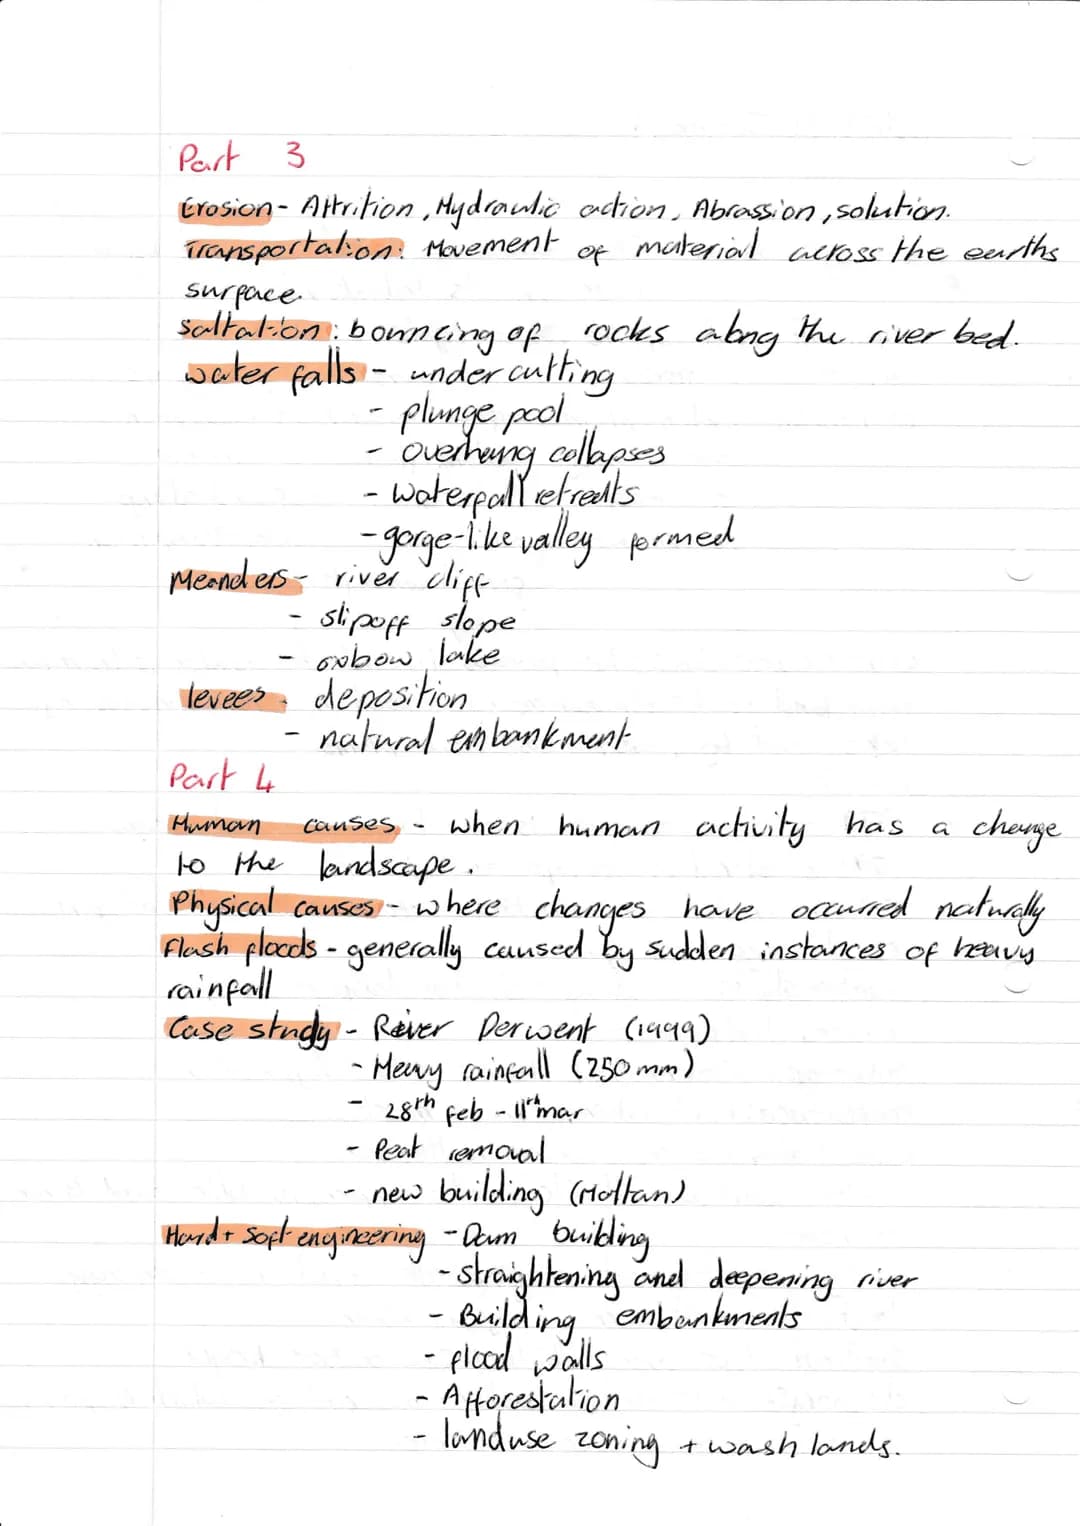 Part 3
Erosion - Attrition, Hydraulic action, Abrassion, solution.
Transportation: Movement of material across the earths
surface.
Saltation: bouncing of rocks along the river bed.
water falls - under cutting
- plunge pool
- overhang collapses
- waterfall retreats
- gorge-like valley formed
Meanders - river cliff
- slipoff slope
- oxbow lake
levees - deposition
- natural embankment
Part 4
Human causes - when human activity has a change
to the landscape.
Physical causes - where changes have occurred naturally
Flash floods - generally caused by sudden instances of heavy
rainfall
Case study - River Derwent (1999)
- Heavy rainfall (250mm)
- 28th feb - 11th mar
- Peat removal
- new building (Maltan)
Hard + Soft engineering - Dam building
- straightening and deepening river
- Building embankments
- flood walls
- Afforestation
- landuse zoning + wash lands.